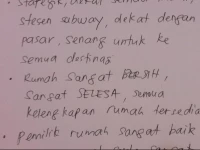 strategik, dekat
stesen subway, dekat dengan
pasar, senang untuk ke
semua destinasi
• Rumah sangat BERSIH,
sangat SELESA, semua
kelengkapan rumah tersedia
• Pemilik rumah sangat baik